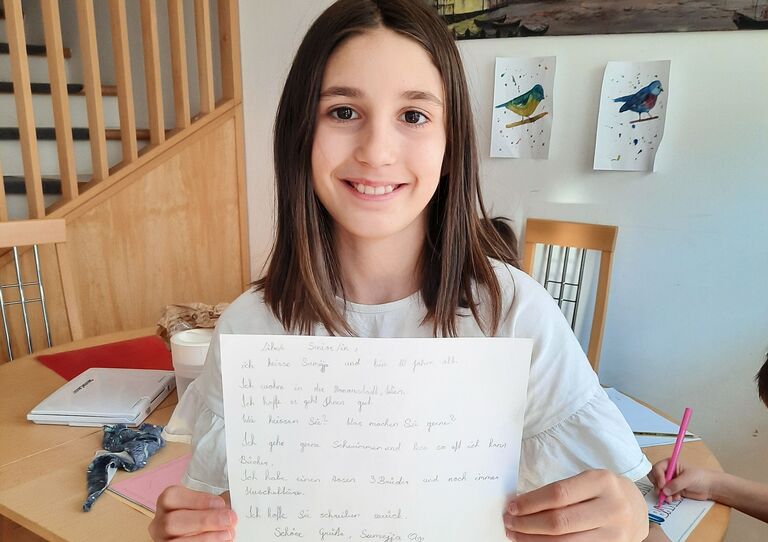 Liebe/r Senior/in,
ich heisse Sumejja und bin 10 Jahre alt.
Ich wohne in die Donaustadt, Wien.
Ich hoffe es geht Ihnen gut.
Wie heissen Sie? Was machen Sie gerne?
Ich gehe gerne Schwimmen und lese so oft ich kann
Bücher.
Ich habe einen 3 Brüder und noch immer
Kuscheltiere.
Ich hoffe Sie schreiben zurück.
Schöne Grüße, Sumejja